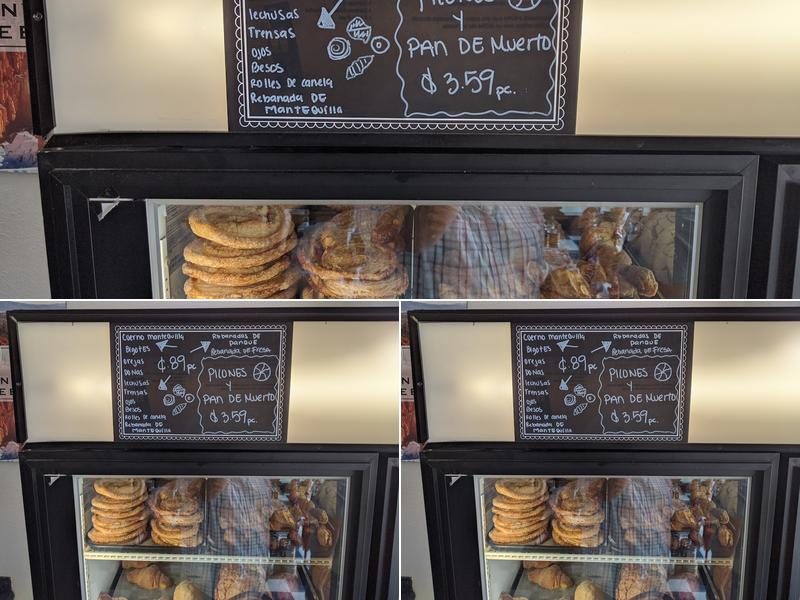 lechusas
Trensas
Ojos
Besos
Rolles de canela
Rebanada DE
MANTEQuilla
PILONES
Y
PAN DE MUERTO
¢ 3.59 pc.
Cuerno mantequilla
Bigotes
orejas
DONAS
lechusas
Trensas
Ojos
Besos
Rolles de canela
Rebanada DE
MANTEQuilla
¢ .89 pc
Rebanadas DE
PANQUE
Rebanada de Fresa
PILONES
Y
PAN DE MUERTO
¢ 3.59 pc.
Cuerno mantequilla
Bigotes
orejas
DONAS
lechusas
Trensas
Ojos
Besos
Rolles de canela
Rebanada DE
MANTEQuilla
¢ .89 pc
Rebanadas DE
PANQUE
Rebanada de Fresa
PILONES
Y
PAN DE MUERTO
¢ 3.59 pc.